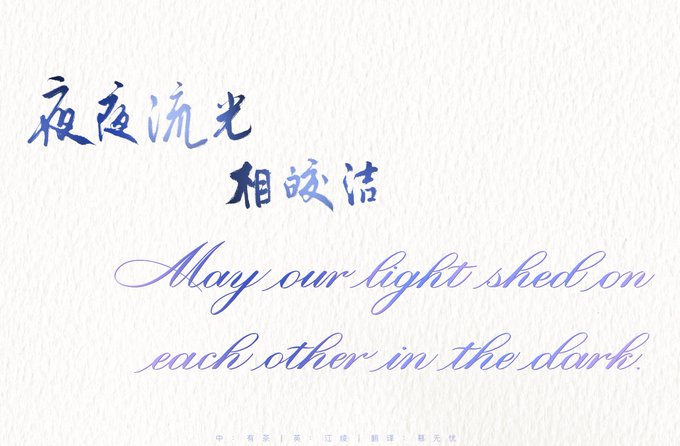 夜夜流光
相皎洁
May our light shed on
each other in the dark.
中：有茶 | 英：江绫 | 翻译：慕无忧